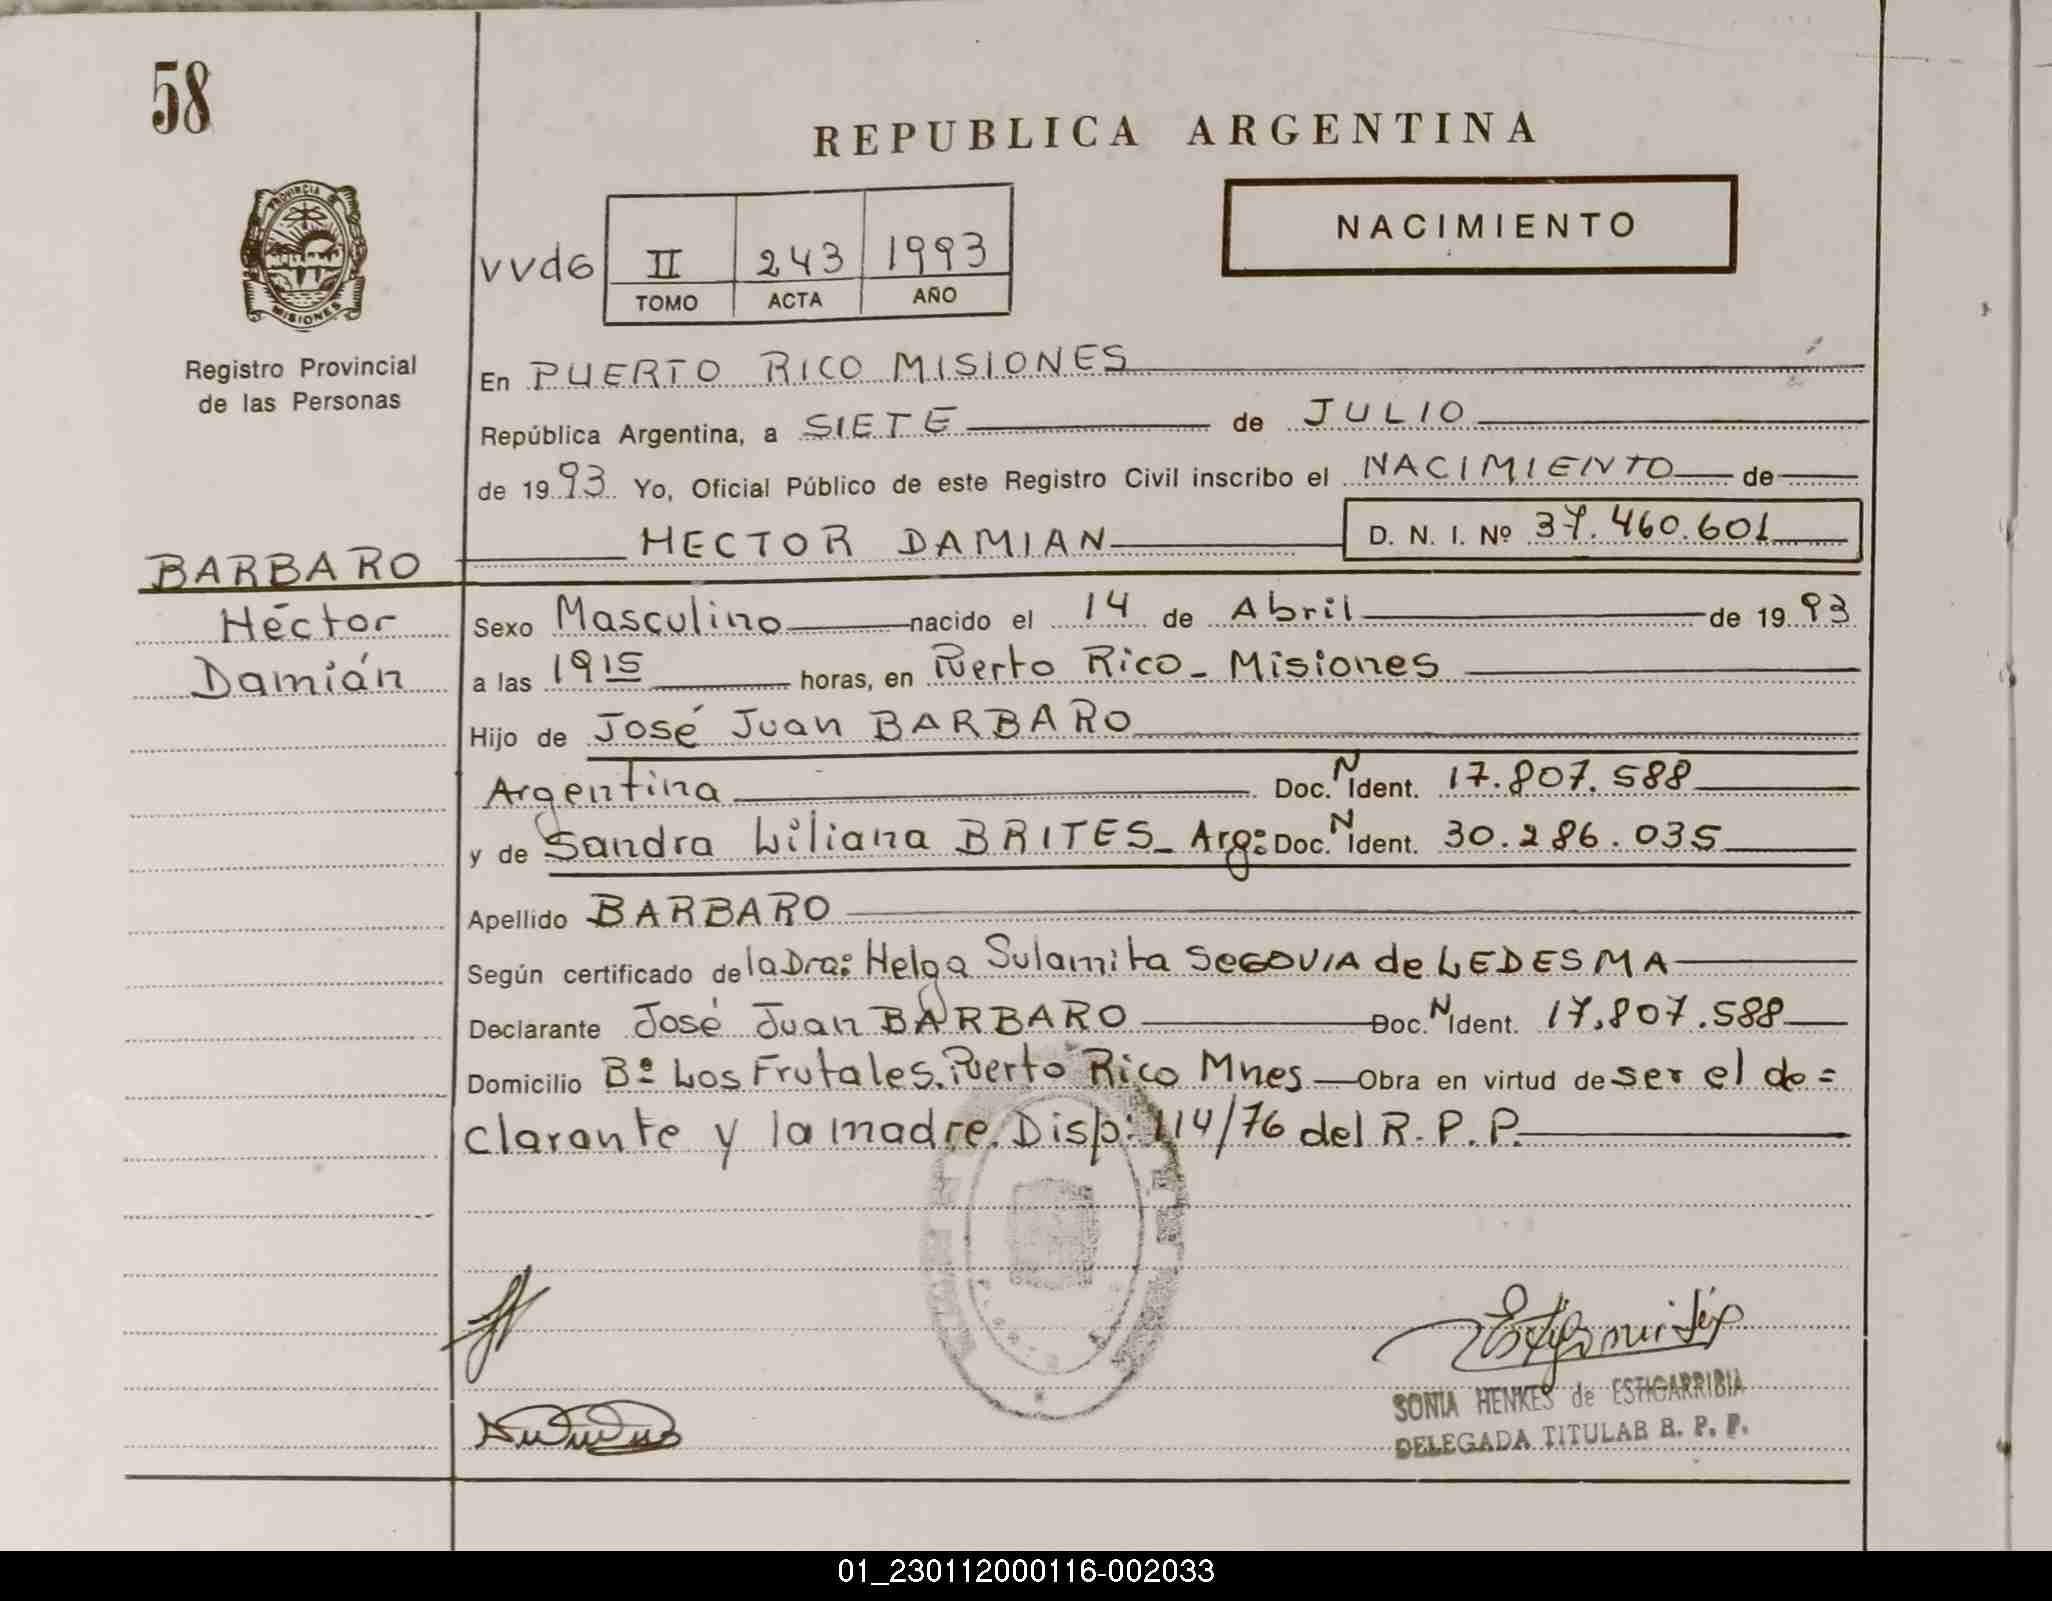 58
REPUBLICA ARGENTINA
NACIMIENTO
PROVINCIA
MISIONES
vvd6 II 243 1993
TOMO ACTA AÑO
Registro Provincial
de las Personas
En PUERTO RICO MISIONES
República Argentina, a SIETE de JULIO
de 1993 Yo, Oficial Público de este Registro Civil inscribo el NACIMIENTO de
HECTOR DAMIAN D. N. I. Nº 37.460.601
BARBARO
Héctor
Damián
Sexo Masculino nacido el 14 de Abril de 1993
a las 1915 horas, en Puerto Rico - Misiones
Hijo de José Juan BARBARO
Argentina Doc. N Ident. 17.807.588
y de Sandra Liliana BRITES - Arg: Doc. N Ident. 30.286.035
Apellido BARBARO
Según certificado de la Dra: Helga Sulamita SEGOVIA de LEDESMA
Declarante José Juan BARBARO Doc. N Ident. 17.807.588
Domicilio Bº Los Frutales. Puerto Rico Mnes Obra en virtud de ser el de=
clarante y la madre. Disp: 114/76 del R.P.P.
SONIA HENKES de ESTIGARRIBIA
DELEGADA TITULAR R. P. P.
01_230112000116-002033